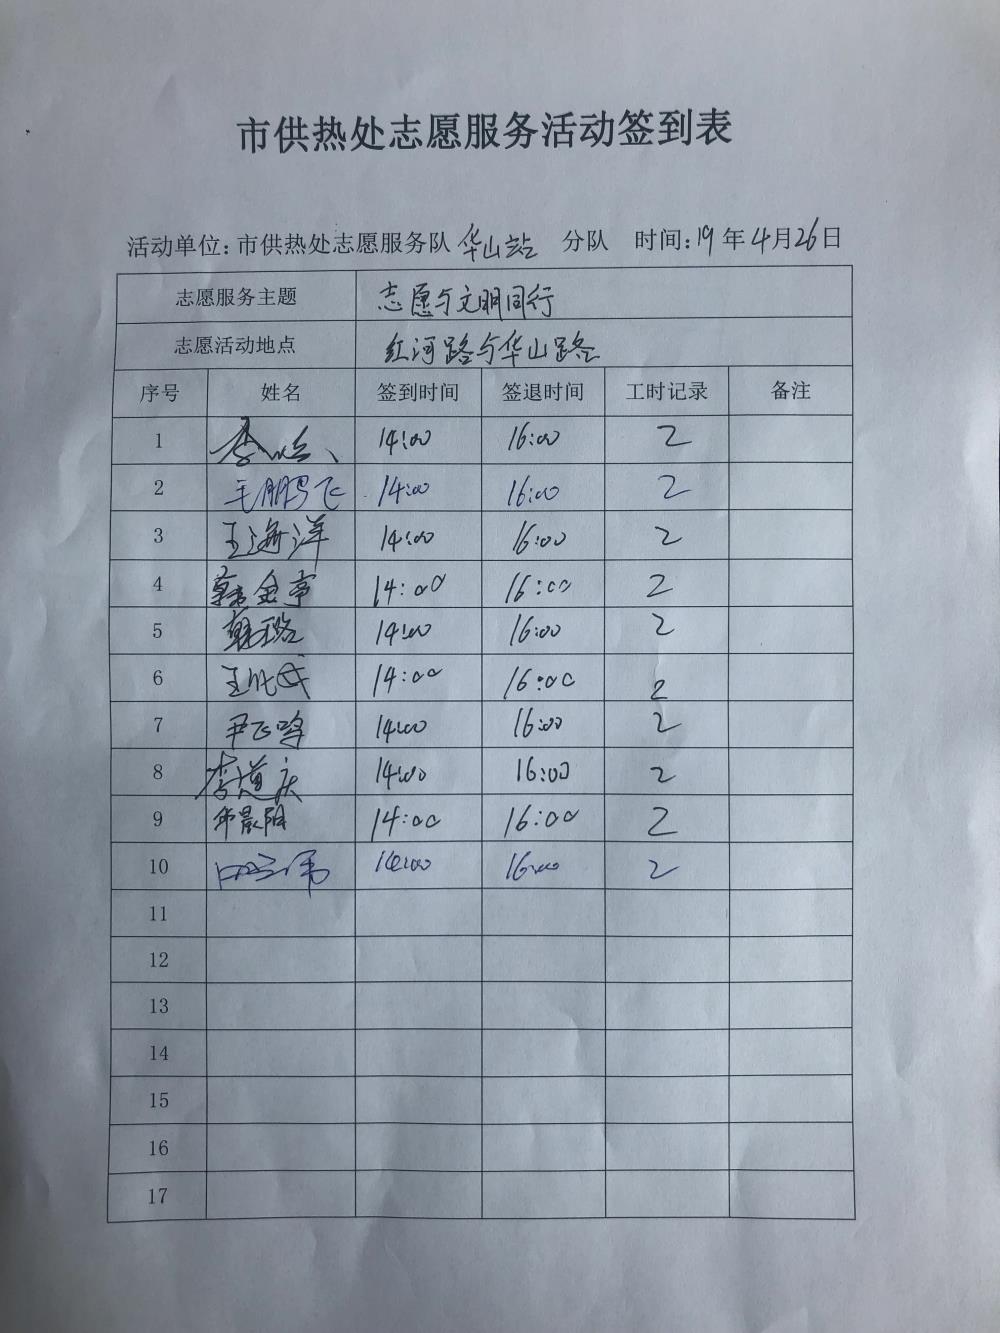 市供热处志愿服务活动签到表
活动单位:市供热处志愿服务队 华山站 分队 时间:19年4月26日
志愿服务主题 志愿与文明同行
志愿活动地点 红河路与华山路
序号 姓名 签到时间 签退时间 工时记录 备注
1 李 14:00 16:00 2
2 王鹏飞 14:00 16:00 2
3 王海洋 14:00 16:00 2
4 韩金亭 14:00 16:00 2
5 韩璐 14:00 16:00 2
6 王 14:00 16:00 2
7 尹飞鸣 14:00 16:00 2
8 李道庆 14:00 16:00 2
9 晨阳 14:00 16:00 2
10 14:00 16:00 2
11
12
13
14
15
16
17